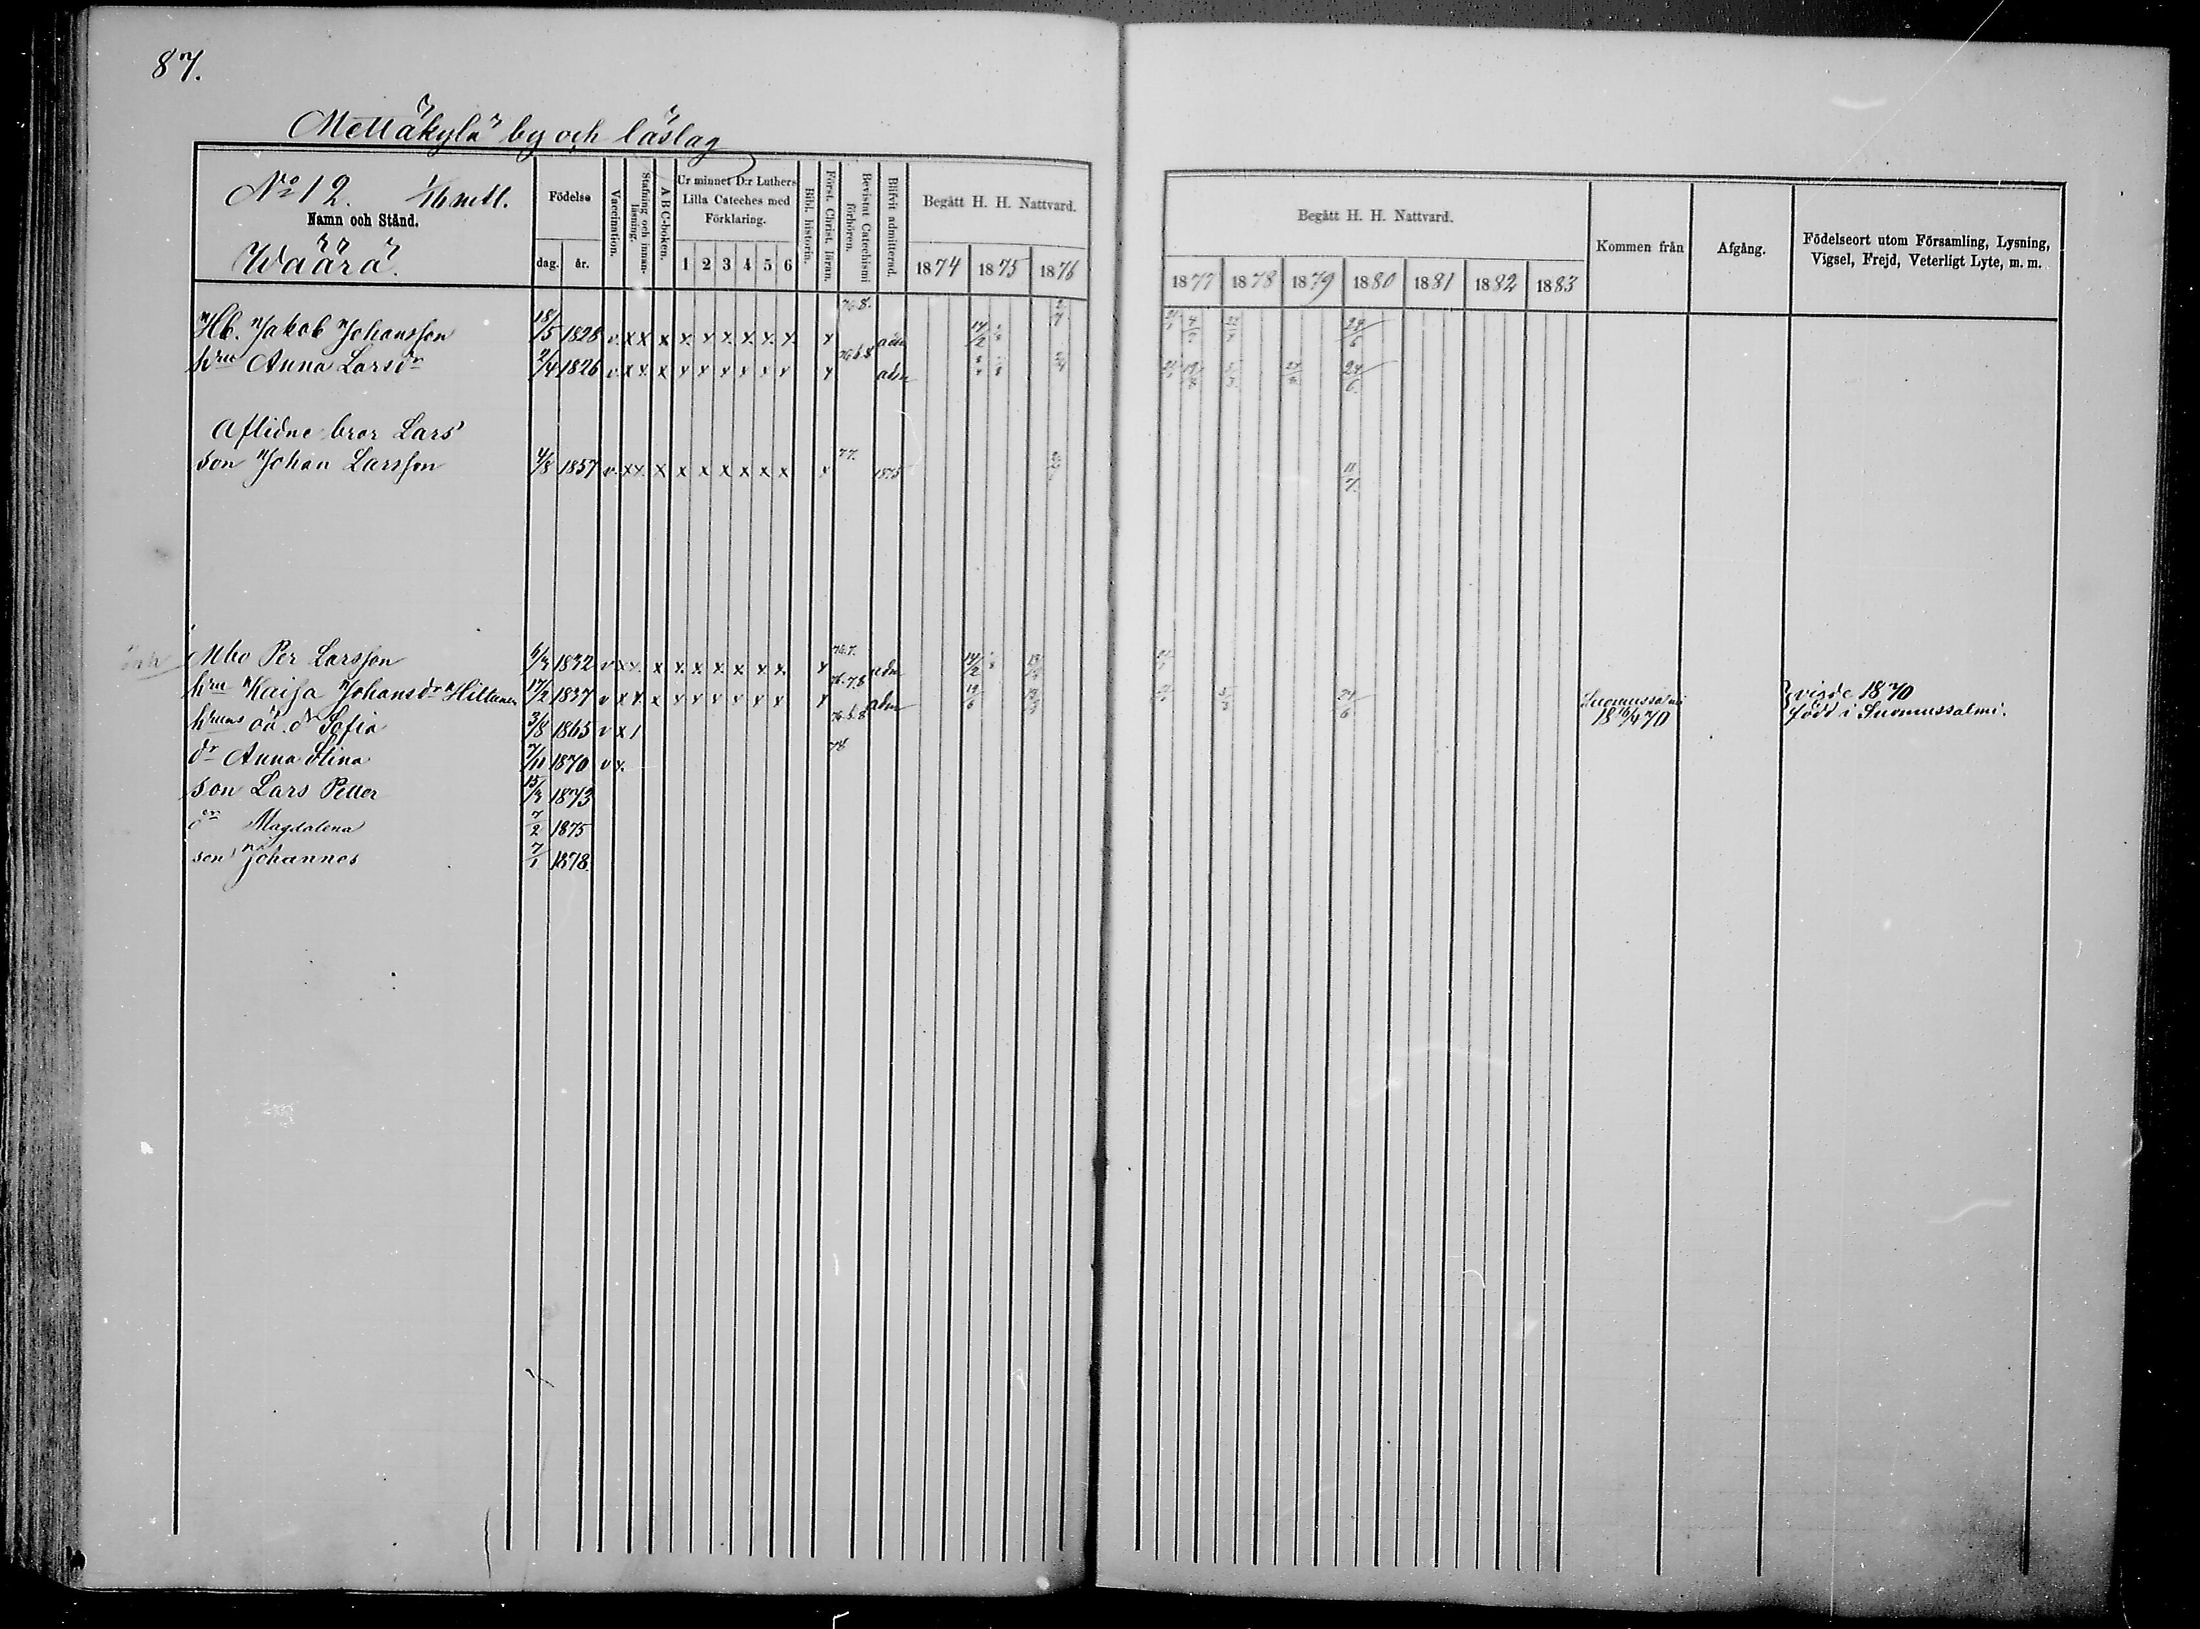 87.
Mettäkylä by och läslag
No 12. 1/6 mtl.
Namn och Stånd.
Waärä.
Födelse
dag. år.
Vaccination.
Stafning och innanläsning.
A B C-boken.
Ur minnet D:r Luthers Lilla Cateches med Förklaring.
1 2 3 4 5 6
Bibl. historia.
Först. Christ. läran.
Bevistat Catechismi förhören.
Blifvit admitterad.
Begått H. H. Nattvard.
1874 1875 1876
Begått H. H. Nattvard.
1877 1878 1879 1880 1881 1882 1883
Kommen från
Afgång.
Födelseort utom Församling, Lysning, Vigsel, Frejd, Veterligt Lyte, m. m.
Hb. Jakob Johansson 18/5 1828 v. x x x x x x x x x x adm 14/2 24/6
hru Anna Larsdr 2/4 1826 v. x x x x x x x x x x adm 24/6
Aflidne bror Lars
son Johan Larsson 4/8 1857 v. x x x x x x x x x x 77. 1875 11/7
Mbo Per Larsson 6/3 1832 v x x x x x x x x x x 76.7. adm 14/2
hru Kaisa Johansdr Hiltunen 17/2 1837 v x x x x x x x x x x 76.7.8 adm 19/6 24/6 Suomussalmi 18 16/4 70 vigde 1870
född i Suomussalmi.
hruns oä. dr Sofia 3/8 1865 v x 1
dr Anna Stina 7/11 1870 v x. 78
son Lars Petter 15/3 1873
dr Magdalena 7/2 1875
son Johannes 7/1 1878.